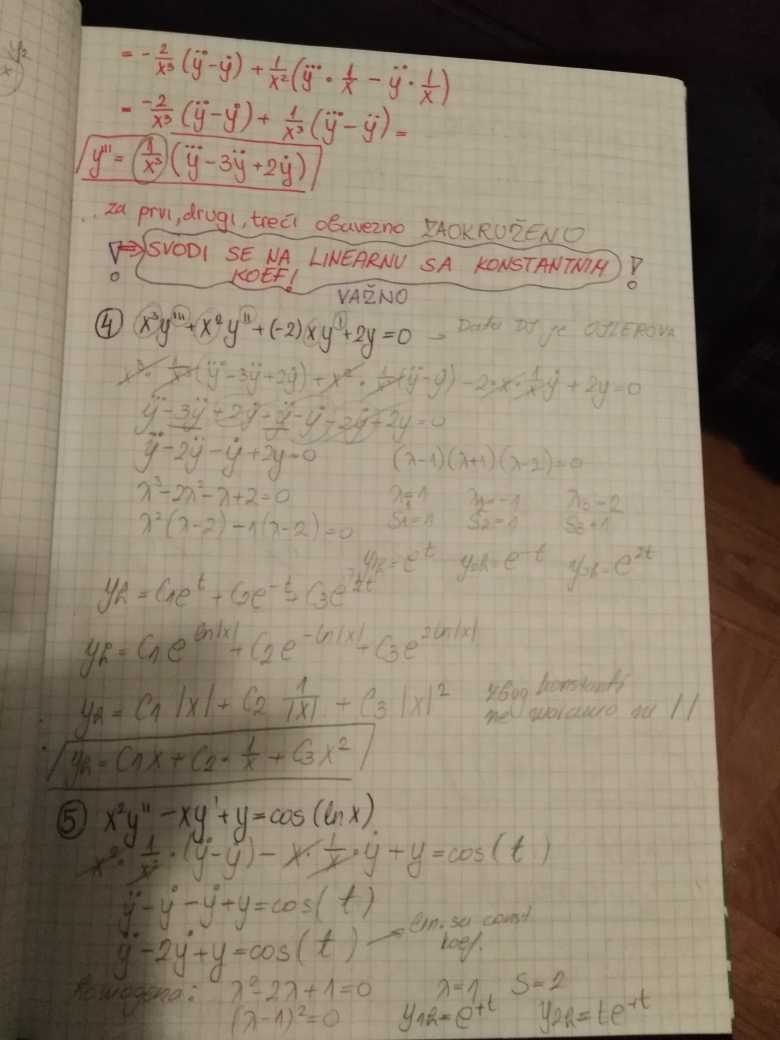 y2
x
= -2/x³ (ÿ-ẏ) + 1/x² (y⃛ · 1/x - ÿ · 1/x)
= -2/x³ (ÿ-ẏ) + 1/x³ (y⃛-ÿ) =
y''' = 1/x³ (y⃛-3ÿ+2ẏ)
... za prvi, drugi, treći obavezno ZAOKRUŽENO
! ⇒ SVODI SE NA LINEARNU SA KONSTANTNIM !
KOEF!
VAŽNO
④ x³y''' + x²y'' + (-2)xy' + 2y = 0 → Data DJ je OJLEROVA
x³ · 1/x³ (y⃛-3ÿ+2ẏ) + x² · 1/x² (ÿ-ẏ) - 2·x·1/x ẏ + 2y = 0
y⃛-3ÿ+2ẏ+ÿ-ẏ-2ẏ+2y=0
y⃛-2ÿ-ẏ+2y=0 (λ-1)(λ+1)(λ-2)=0
λ³-2λ²-λ+2=0 λ1=1 λ2=-1 λ3=2
λ²(λ-2)-1(λ-2)=0 S1=1 S2=1 S3=1
y1h=e^t y2h=e^-t y3h=e^2t
yh = C1e^t + C2e^-t + C3e^2t
yh = C1e^ln|x| + C2e^-ln|x| + C3e^2ln|x|
yh = C1 |x| + C2 1/|x| + C3 |x|² zbog konstanti
ne moramo ni | |
yh = C1x + C2 · 1/x + C3x²
⑤ x²y'' - xy' + y = cos(ln x)
x² · 1/x² · (ÿ-ẏ) - x · 1/x · ẏ + y = cos(t)
ÿ-ẏ-ẏ+y=cos(t)
ÿ-2ẏ+y=cos(t) → lin. sa const
koef.
Homogena: λ²-2λ+1=0 λ=1 S=2
(λ-1)²=0 y1h=e^+t y2h=te^+t